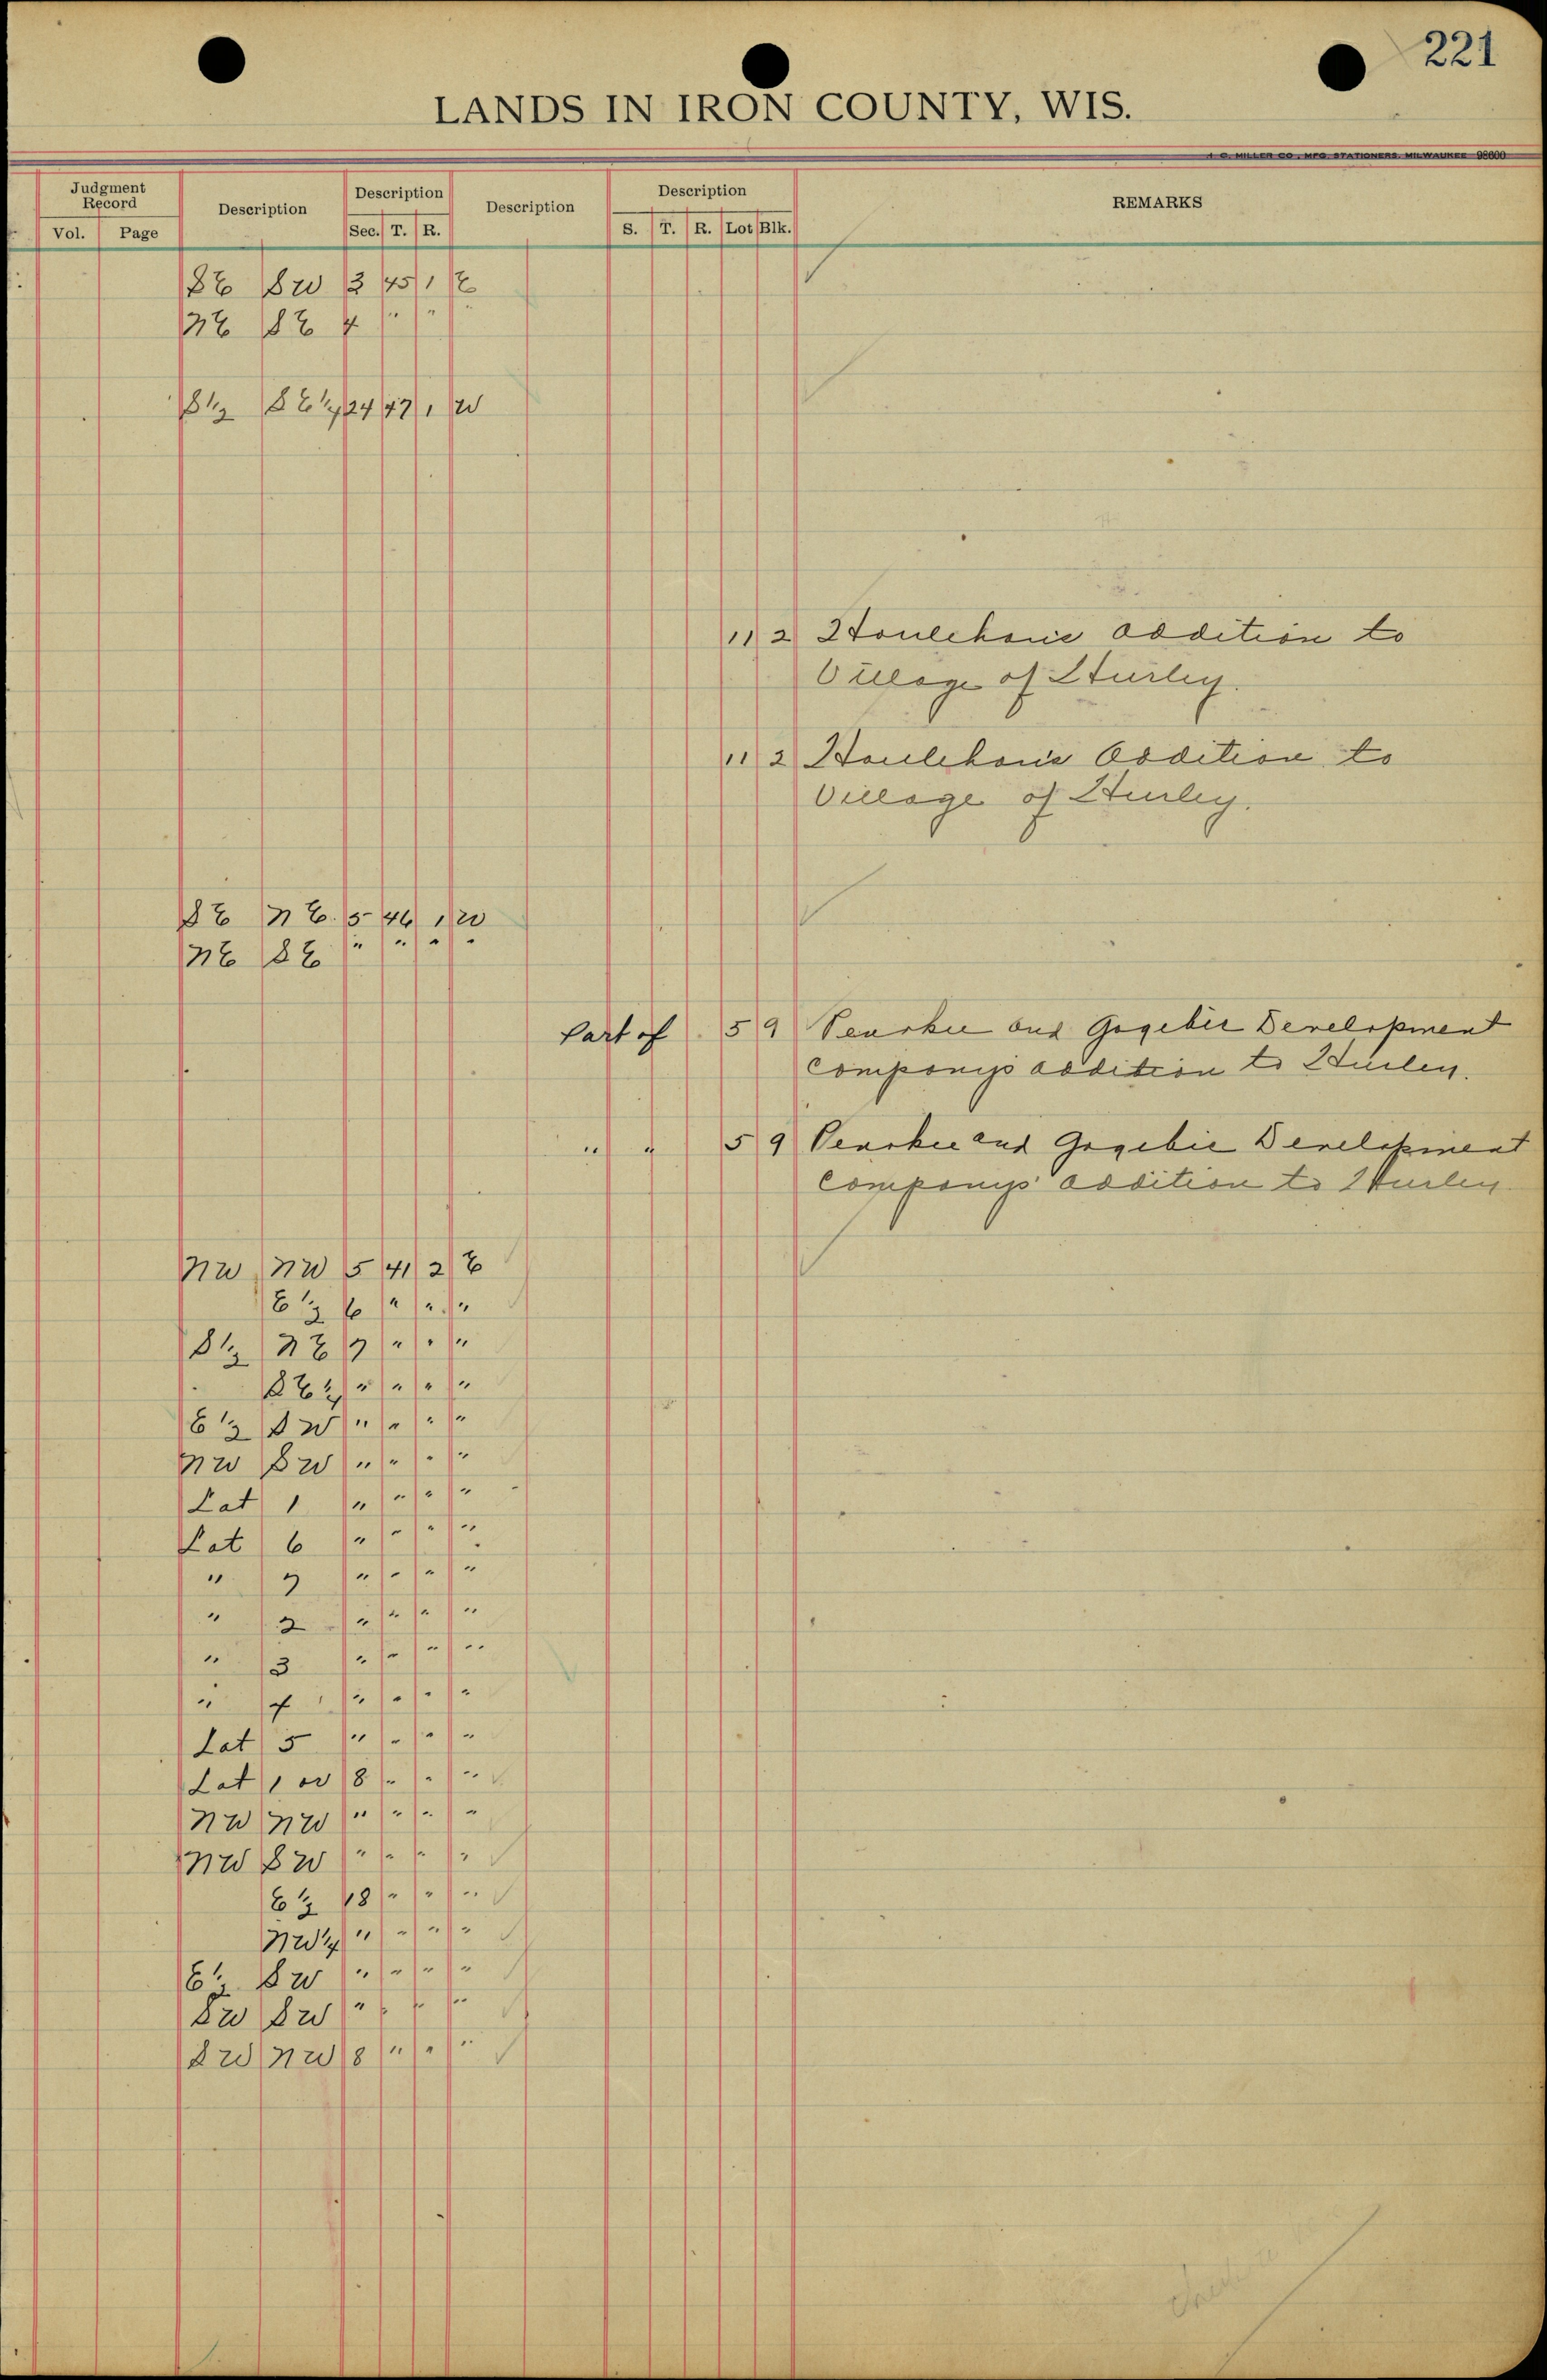 221
LANDS IN IRON COUNTY, WIS.
H. C. MILLER CO., MFG. STATIONERS, MILWAUKEE 98600
Judgment Record Description Description Description Description REMARKS
Vol. Page Sec. T. R. S. T. R. Lot Blk.
SE SW 3 45 1 E
NE SE 4 " "  "
S½ SE¼ 24 47 1 W
11 2 Houlehan's Addition to
Village of Hurley.
11 2 Houlehan's Addition to
Village of Hurley.
SE NE 5 46 1 W
NE SE " " " "
Part of 5 9 Penokee and Gogebic Development
Company's addition to Hurley.
" " 5 9 Penokee and Gogebic Development
Company's addition to Hurley.
NW NW 5 41 2 E
E½ 6 " " "
S½ NE 7 " " "
SE¼ " " " "
E½ SW " " " "
NW SW " " " "
Lot 1 " " " "
Lot 6 " " " "
" 7 " " " "
" 2 " " " "
" 3 " " " "
" 4 " " " "
Lot 5 " " " "
Lot 1 or 8 " " "
NW NW " " " "
NW SW " " " "
E½ 18 " " "
NW¼ " " " "
E½ SW " " " "
SW SW " " " "
SW NW 8 " " "